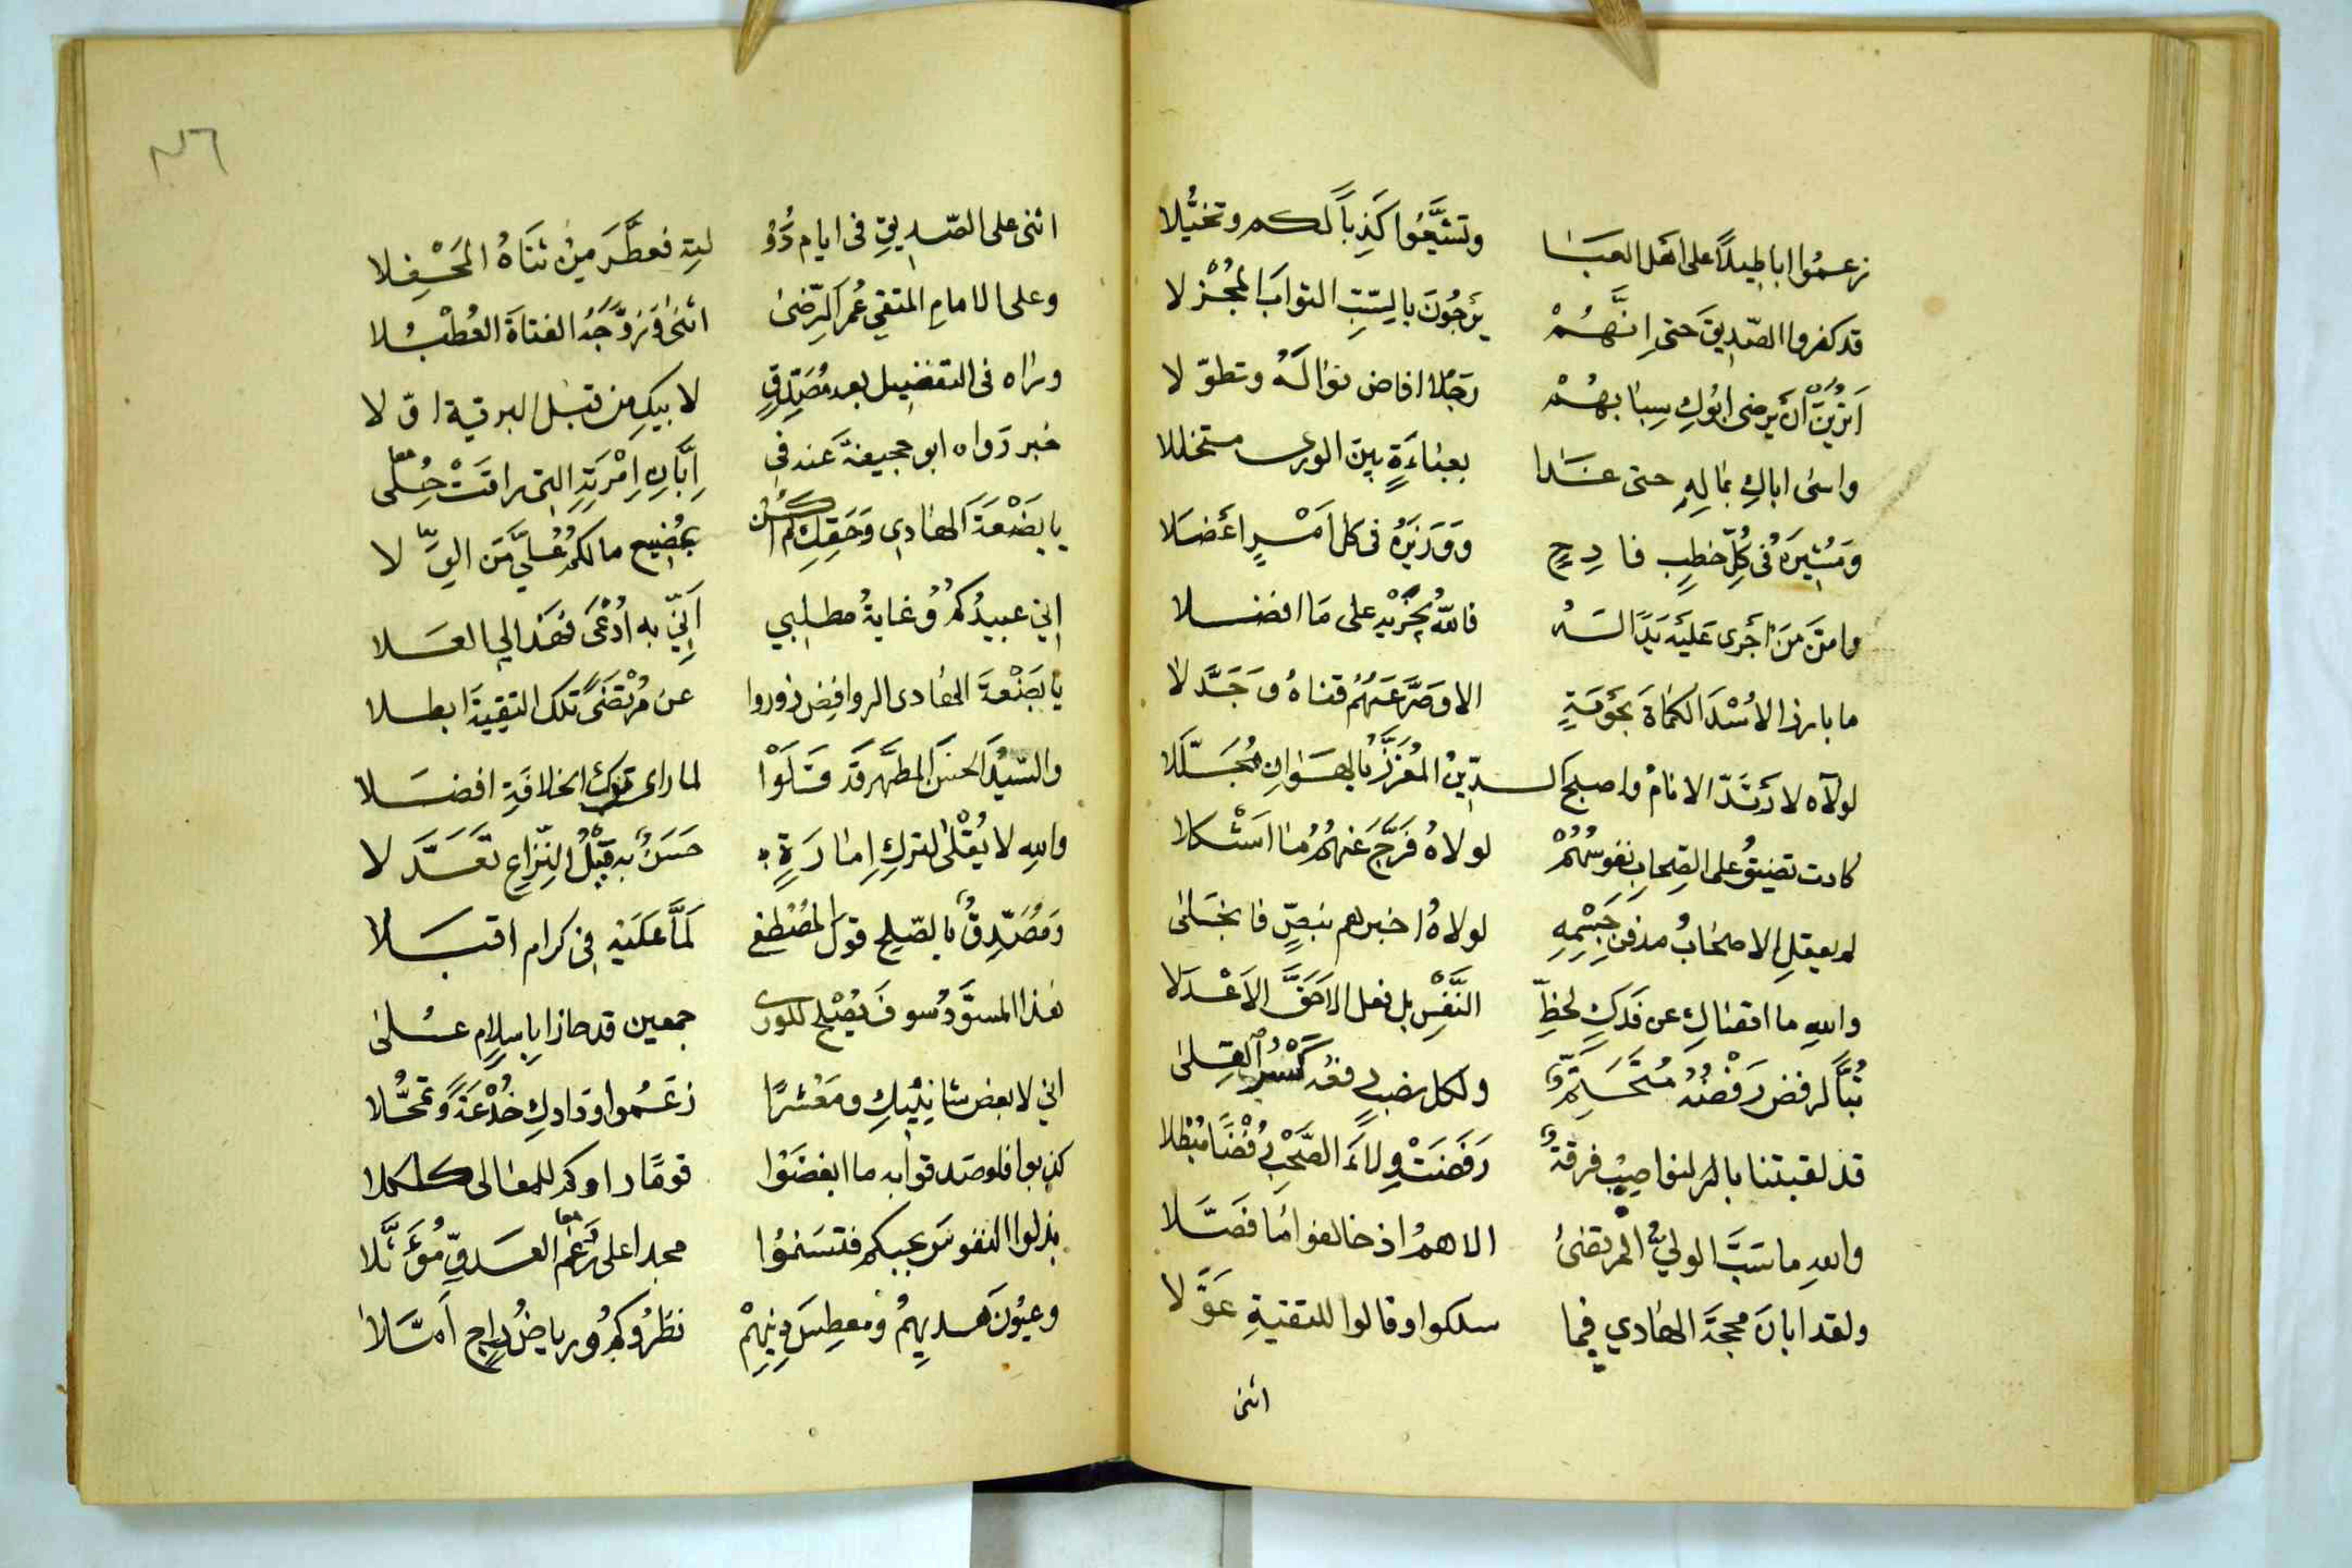 زعموا اباطيلاً على اهل العبا وتشيَّعوا كَذِباً لكم وتخيُّلا
قد كفروا الصّديقَ حتى اِنَّهُمْ يَرجُونَ بالسّبِّ الثوابَ المُجْزلا
اَتَرَيْنَ أنْ يرضى ابُوكِ سِبابهُمْ رَجُلاً افاض نوالَهُ وتطوّلا
واسى اباكِ بمالِهِ حتى غدا بعباءَةٍ بين الورى متخللا
ومُشيرَهُ فى كُلِّ خطبٍ فادِحٍ ووَزيرَهُ فى كل اَمْرٍ اعضَلا
وامَنَّ مَن اَجرى عَليْه يَدًا لَهُ فاللهُ يُجْزيْهِ على مَا افضلا
ما بارز الاُسْدَ الكماةَ بحَومَةٍ الا وصَرَّعَهُمْ قناهُ وجَدَّلا
لولاه لارتَدّ الانامُ واصبح الدّينُ المُعَزَّزُ بالهوانِ مُجَلَّلا
كادت تضيقُ على الصِحابِ نفوسُهُمْ لولاهُ فَرَّجَ عَنهُمُ ما اَشْكلا
لم يعقلِ الاصحابُ مدفن جِسْمِهِ لولاهُ اخبرهم بنصٍّ فانجلى
واللهِ ما اقصاكِ عن فَدَكٍ لحظِّ النَّفْسِ بل فعل الاحَقَّ الاَعْدَلا
تُبَّاً لرفض رَفْضُهُ مُتَحَتِّمٌ ولكل نصبٍ فعْدُ كَسْرِ القِلى
قد لقبتنا بالنواصِبِ فرقةٌ رَفَضَتْ وِلاءَ الصَّحْبِ رُفْضًا مُبْطلا
والله ما سَبَّ الوليُّ المرتضى الا همُ اذ خالفوا ما فَصَّلا
ولقد ابان محجةَ الهادي فما سلكوا وقالوا للتقيةِ عَوَّلا
اثنى
اثنى على الصّديقِ فى ايام دَوْ لتِهِ فعطَّرَ مِنْ ثَناهُ المَحْفِلا
وعلى الامامِ المتقي عُمَرَ الرّضى اثنى وَزوَّجَهُ الفتاةَ العُطْبُلا
وراه فى التفضيل بعد مُصَدِّقٍ لابيكِ من قبل البرية اوّلا
خبر رَواه ابو جحيفةَ عَنه فى اِبَّانِ اِمْرَتِهِ التى راقَتْ حُلى
يا بضْعَةَ الهادى وَحَقِّكِ لم اكُن بمُضِيع مالكمُ عَليَّ مَن الوِلا
اِنى عبيدُكمُ وغايةُ مطلبي اَنِّي به اُدْعَى فهذا لى العلا
يا بَضْعةَ الهادى الروافِض زوروا عن مُرْتضىً تلك التقيةَ ابطلا
والسّيّدَ الحسَنَ المطهَّر قَد قَلَوْا لما راى تركَ الخلافةِ افضلا
واللهِ لا يُقْلى لتركِ اِمارَةٍ حَسَنٌ به قِيْلُ النِّزاعِ تَعَدَّلا
ومُصَدِّقٌ بالصّلحِ قولَ المُصْطفى لَمَّا عَلَيْهِ فى كرام اقبلا
هذا المسوَّدُ سوفَ يُصْلح للورى جمعين قد حازا باسلامٍ عُلى
انى لابغض شانِئيكِ ومَعْشرًا زعَمُوا ودادكِ خُدْعَةً وتمحُّلا
كذبوا فلو صدقوا به ما ابغضَوْا قومًا راوكم للمعالى كلكلا
بذلوا النفوسَ بحبكم فتسنموا مجدا على رَغْم العدوِّ مُؤَثَّلا
وعيُونَ هديهِمُ ومعطِسَ دِينِهِمْ نظَرُوكمُ ورياضُ راجٍ اَمَّلا